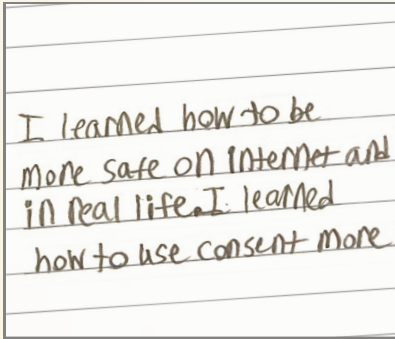 I learned how to be
more safe on internet and
in real life. I learned
how to use consent more